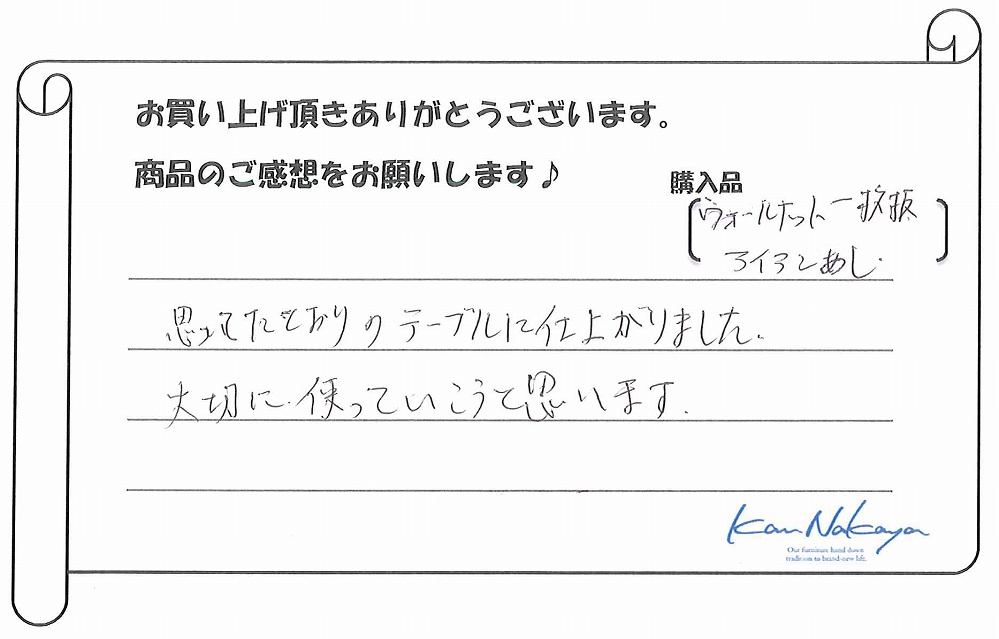 お買い上げ頂きありがとうございます。
商品のご感想をお願いします♪
購入品
ウォールナット一枚板
アイアンあし.
思ってたとおりのテーブルに仕上がりました.
大切に使っていこうと思います.
Kan Nakaya
Our furniture hand down
tradition to brand-new life.